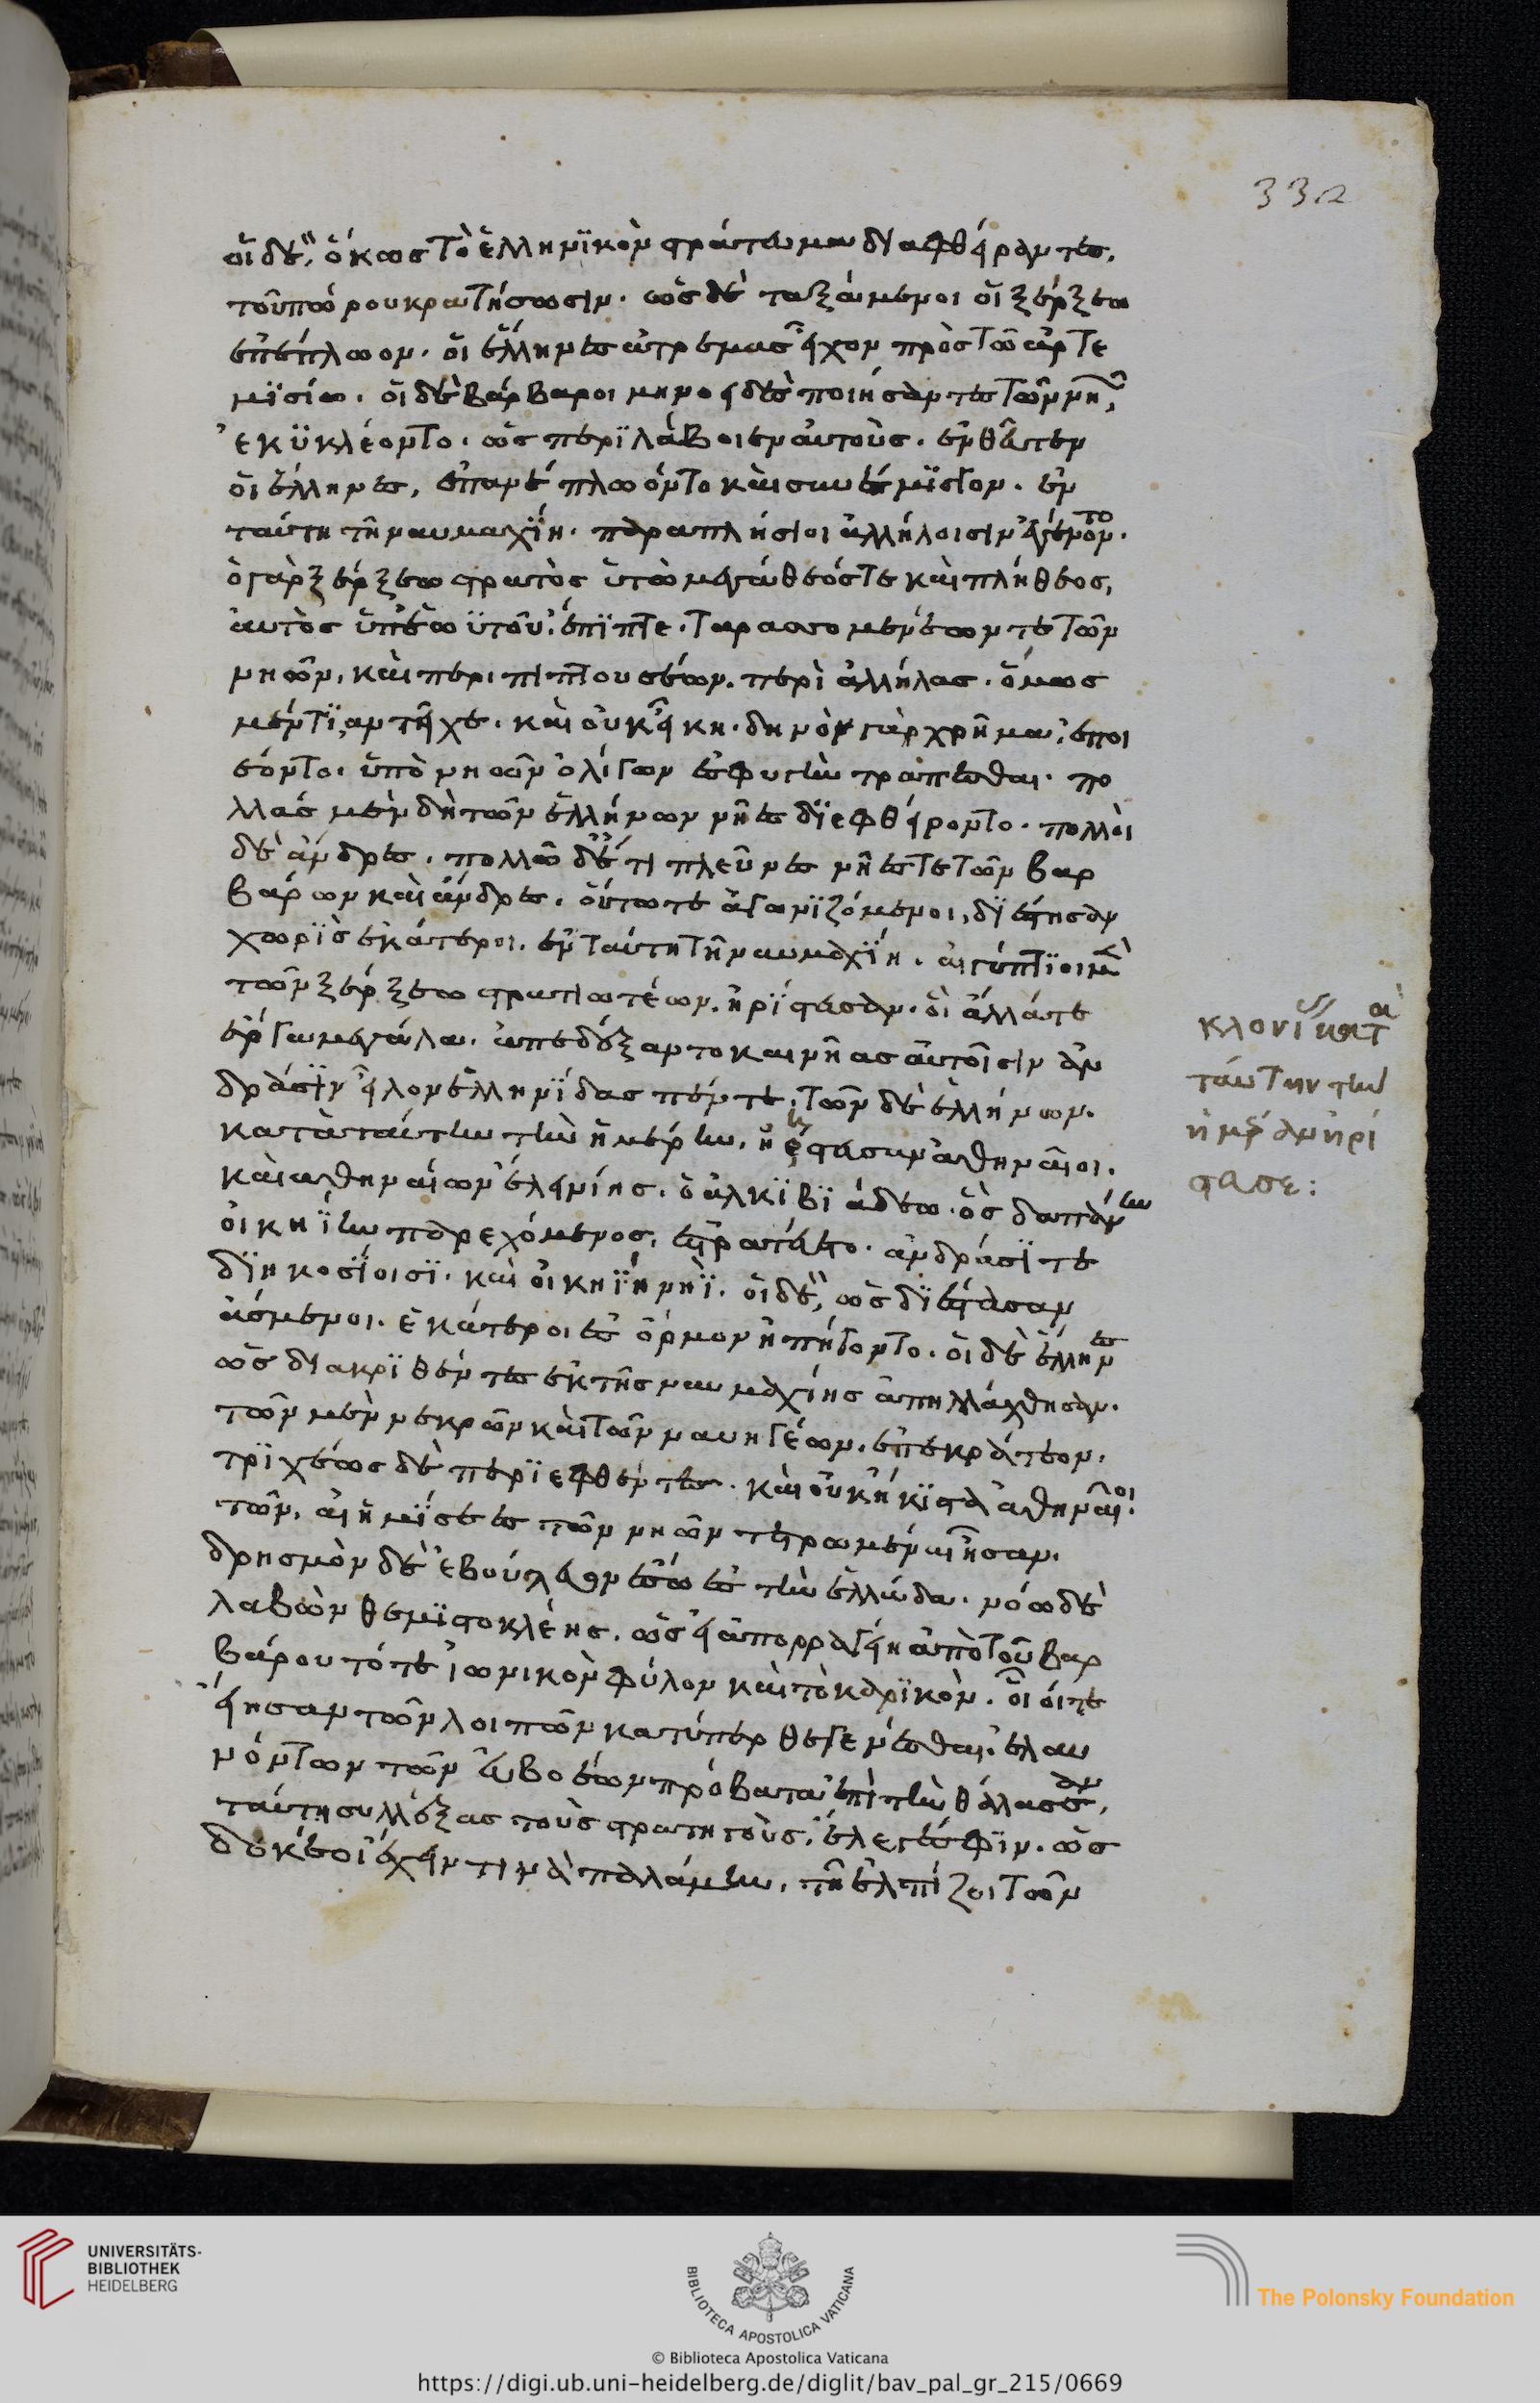 332
οἱ δὲ, ὅκως τὸ ἑλληνϊκὸν στράτευμα διαφθείραντες,
τοῦ πόρου κρατήσωσιν. ὡς δὲ ταξάμενοι οἱ ξέρξεω
ἐπέπλωον. οἱ ἕλληνες ἀτρέμας εἶχον πρὸς τῶ ἀρτε
μϊσίω. οἱ δὲ βάρβαροι μηνοειδὲς ποιήσαντες τῶν νηῶν,
ἐκϋκλέοντο. ὡς περϊλάβοιεν αὐτοὺς. ἐνθεῦτεν
οἱ ἕλληνες, ἐπανέπλωόντο καὶ συνέμϊσγον. ἐν
ταύτη τῆ ναυμαχΐη. παραπλήσιοι ἀλλήλοισιν ἐγένοντο.
ὁ γὰρ ξέρξεω στρατὸς ὑπὸ μεγάθεός τε καὶ πλήθεος,
αὐτὸς ὑπ' ἑωϋτοῦ ἔπϊπτε. ταρασσομενέων τε τῶν
νηῶν, καὶ περιπιπτουσέων. περὶ ἀλλήλας. ὅμως
μέντϊ, ἀντεῖχε. καὶ οὐκ εἶκη. δηνὸν γὰρ χρῆμα, ἐποι
εόντο. ὑπὸ νηῶν ὀλίγων ἐς φυγὴν τράπεσθαι. πο
λλαὶ μὲν δὴ τῶν ἑλλήνων νῆες δϊεφθείροντο. πολλοὶ
δὲ ἄνδρες. πολλῶ δ' ἔτι πλεῦνες νῆές τε τῶν βαρ
βάρων καὶ ἄνδρες. οὕτω τε ἀγωνϊζόμενοι, δϊέστησαν
χωρϊς ἑκάτεροι. ἐν ταύτη τῆ ναυμαχΐη. αἰγύπτϊοι μὲν
τῶν ξέρξεω στρατιωτέων. ἠρίστευσαν. οἳ ἄλλά τε
ἔργα μεγάλα. ἀπεδέξαντο καὶ νῆας αὐτοῖσιν ἀν
δράσϊν εἷλον ἑλληνΐδας πέντε. τῶν δὲ ἑλλήνων.
κατὰ ταύτην τὴν ἡμέρην. ἠρίστευσαν ἀθηναῖοι.
καὶ ἀθηναίων κλεινίης. ὁ ἀλκϊβϊάδεω. ὃς δαπάνην
οἰκηΐην παρεχόμενος, ἐστρατεύετο. ἀνδράσϊ τε
δϊηκοσΐοισϊ. καὶ οἰκηΐη νηΐ. οἱ δὲ, ὡς δϊέστασαν
ἄσμενοι. ἑκάτεροι ἐς ὅρμον ἠπείγοντο. οἱ δὲ ἕλληνες
ὡς διακρϊθέντες ἐκ τῆς ναυμαχίης ἀπηλλάχθησαν.
τῶν μὲν νεκρῶν καὶ τῶν ναυηγέων. ἐπεκράτεον.
τρϊχέως δὲ περϊεφθέντες. καὶ οὐκ ἥκϊστα ἀθηναῖοι
τῶν. αἱ ἡμΐσεες τῶν νηῶν τετρωμέναι ἦσαν.
δρησμὸν δὲ ἐβούλευον ἔσω ἐς τὴν ἑλλάδα. νόω δὲ
λαβὼν θεμϊστοκλέης. ὡς εἰ ἀπορραγείη ἀπὸ τοῦ βαρ
βάρου τό τε ἰωνικὸν φῦλον καὶ τὸ καρϊκὸν. οἷοί τε
εἴησαν τῶν λοιπῶν κατύπερθε γενέσθαι. ἐλαυ
νόντων τῶν εὐβοέων πρόβατα ἐπὶ τὴν θάλασσαν,
ταύτη συλλέξας τοὺς στρατηγοὺς, ἔλεγέ σφϊν. ὡς
δοκέοι ἔχειν τινὰ παλάμην, τῆ ἐλπίζοι τῶν
ταύτην τὴν
UNIVERSITÄTS-
BIBLIOTHEK
HEIDELBERG
BIBLIOTECA APOSTOLICA VATICANA
The Polonsky Foundation
© Biblioteca Apostolica Vaticana
https://digi.ub.uni-heidelberg.de/diglit/bav_pal_gr_215/0669